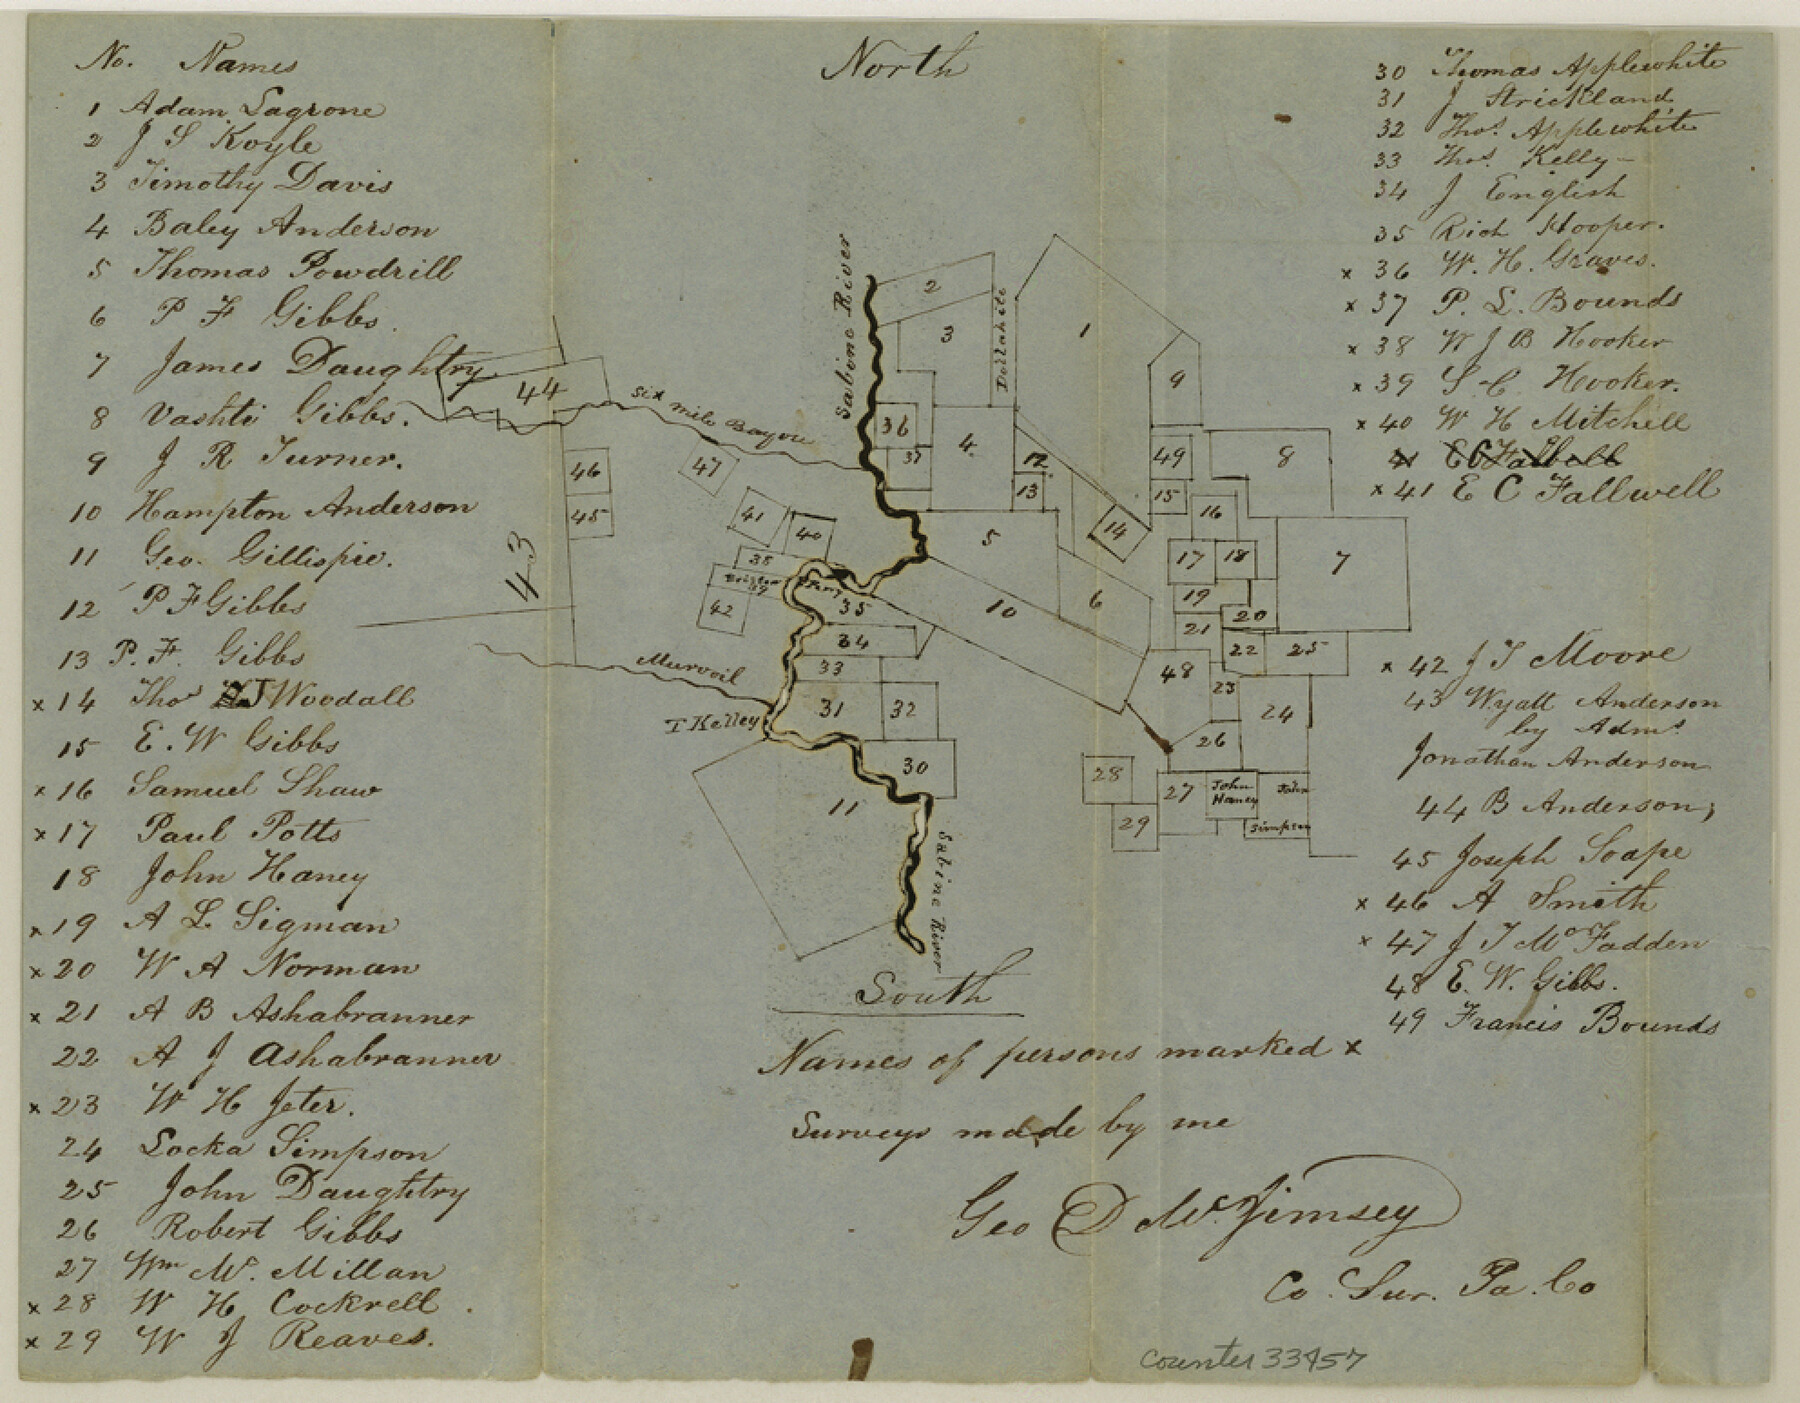 No. Names
1 Adam Lagrone
2 J S Koyle
3 Timothy Davis
4 Baley Anderson
5 Thomas Powdrill
6 P F Gibbs.
7 James Daughtry.
8 Vashti Gibbs.
9 J R Turner.
10 Hampton Anderson
11 Geo. Gillispie.
12 P F Gibbs
13 P. F. Gibbs
x 14 Thos J Woodall
15 E. W Gibbs
x 16 Samuel Shaw
x 17 Paul Potts
18 John Haney
x 19 A L Sigman
x 20 W A Norman
x 21 A B Ashabranner
22 A J Ashabranner
x 23 W H Jeter.
24 Locka Simpson
25 John Daughtry
26 Robert Gibbs
27 Wm Mc. Millan
x 28 W H Cockrell.
x 29 W J Reaves.
North
Sabine River
2
3
Dollahite
1
9
44
Six mile Bayou
36
4.
37
12
13
49
8
15
46
47
45
41
40
14
16
5
43
38
17
18
7
39
Ferry
35
42
10
6
19
20
34
21
22
25
33
Murvoil
48
23
31
32
24
T Kelley
26
30
28
27
John
Haney
John
Simpson
11
29
Sabine River
South
30 Thomas Applewhite
31 J Strickland
32 Thos. Applewhite
33 Thos. Kelly -
34 J English
35 Rich Hooper.
x 36 W. H. Graves.
x 37 P. L. Bounds
x 38 W J B Hooker
x 39 S C Hooker.
x 40 W H Mitchell
41 E C
x 41 E C Fallwell
x 42 J T Moore
43 Wyatt Anderson
by Adms
Jonathan Anderson
44 B Anderson;
45 Joseph Soape
x 46 A Smith
x 47 J T McFadden
48 E. W. Gibbs.
49 Francis Bounds
Names of persons marked x
Surveys made by me
Geo D Mc.Jimsey
Co. Sur. Pa. Co
counter 33457